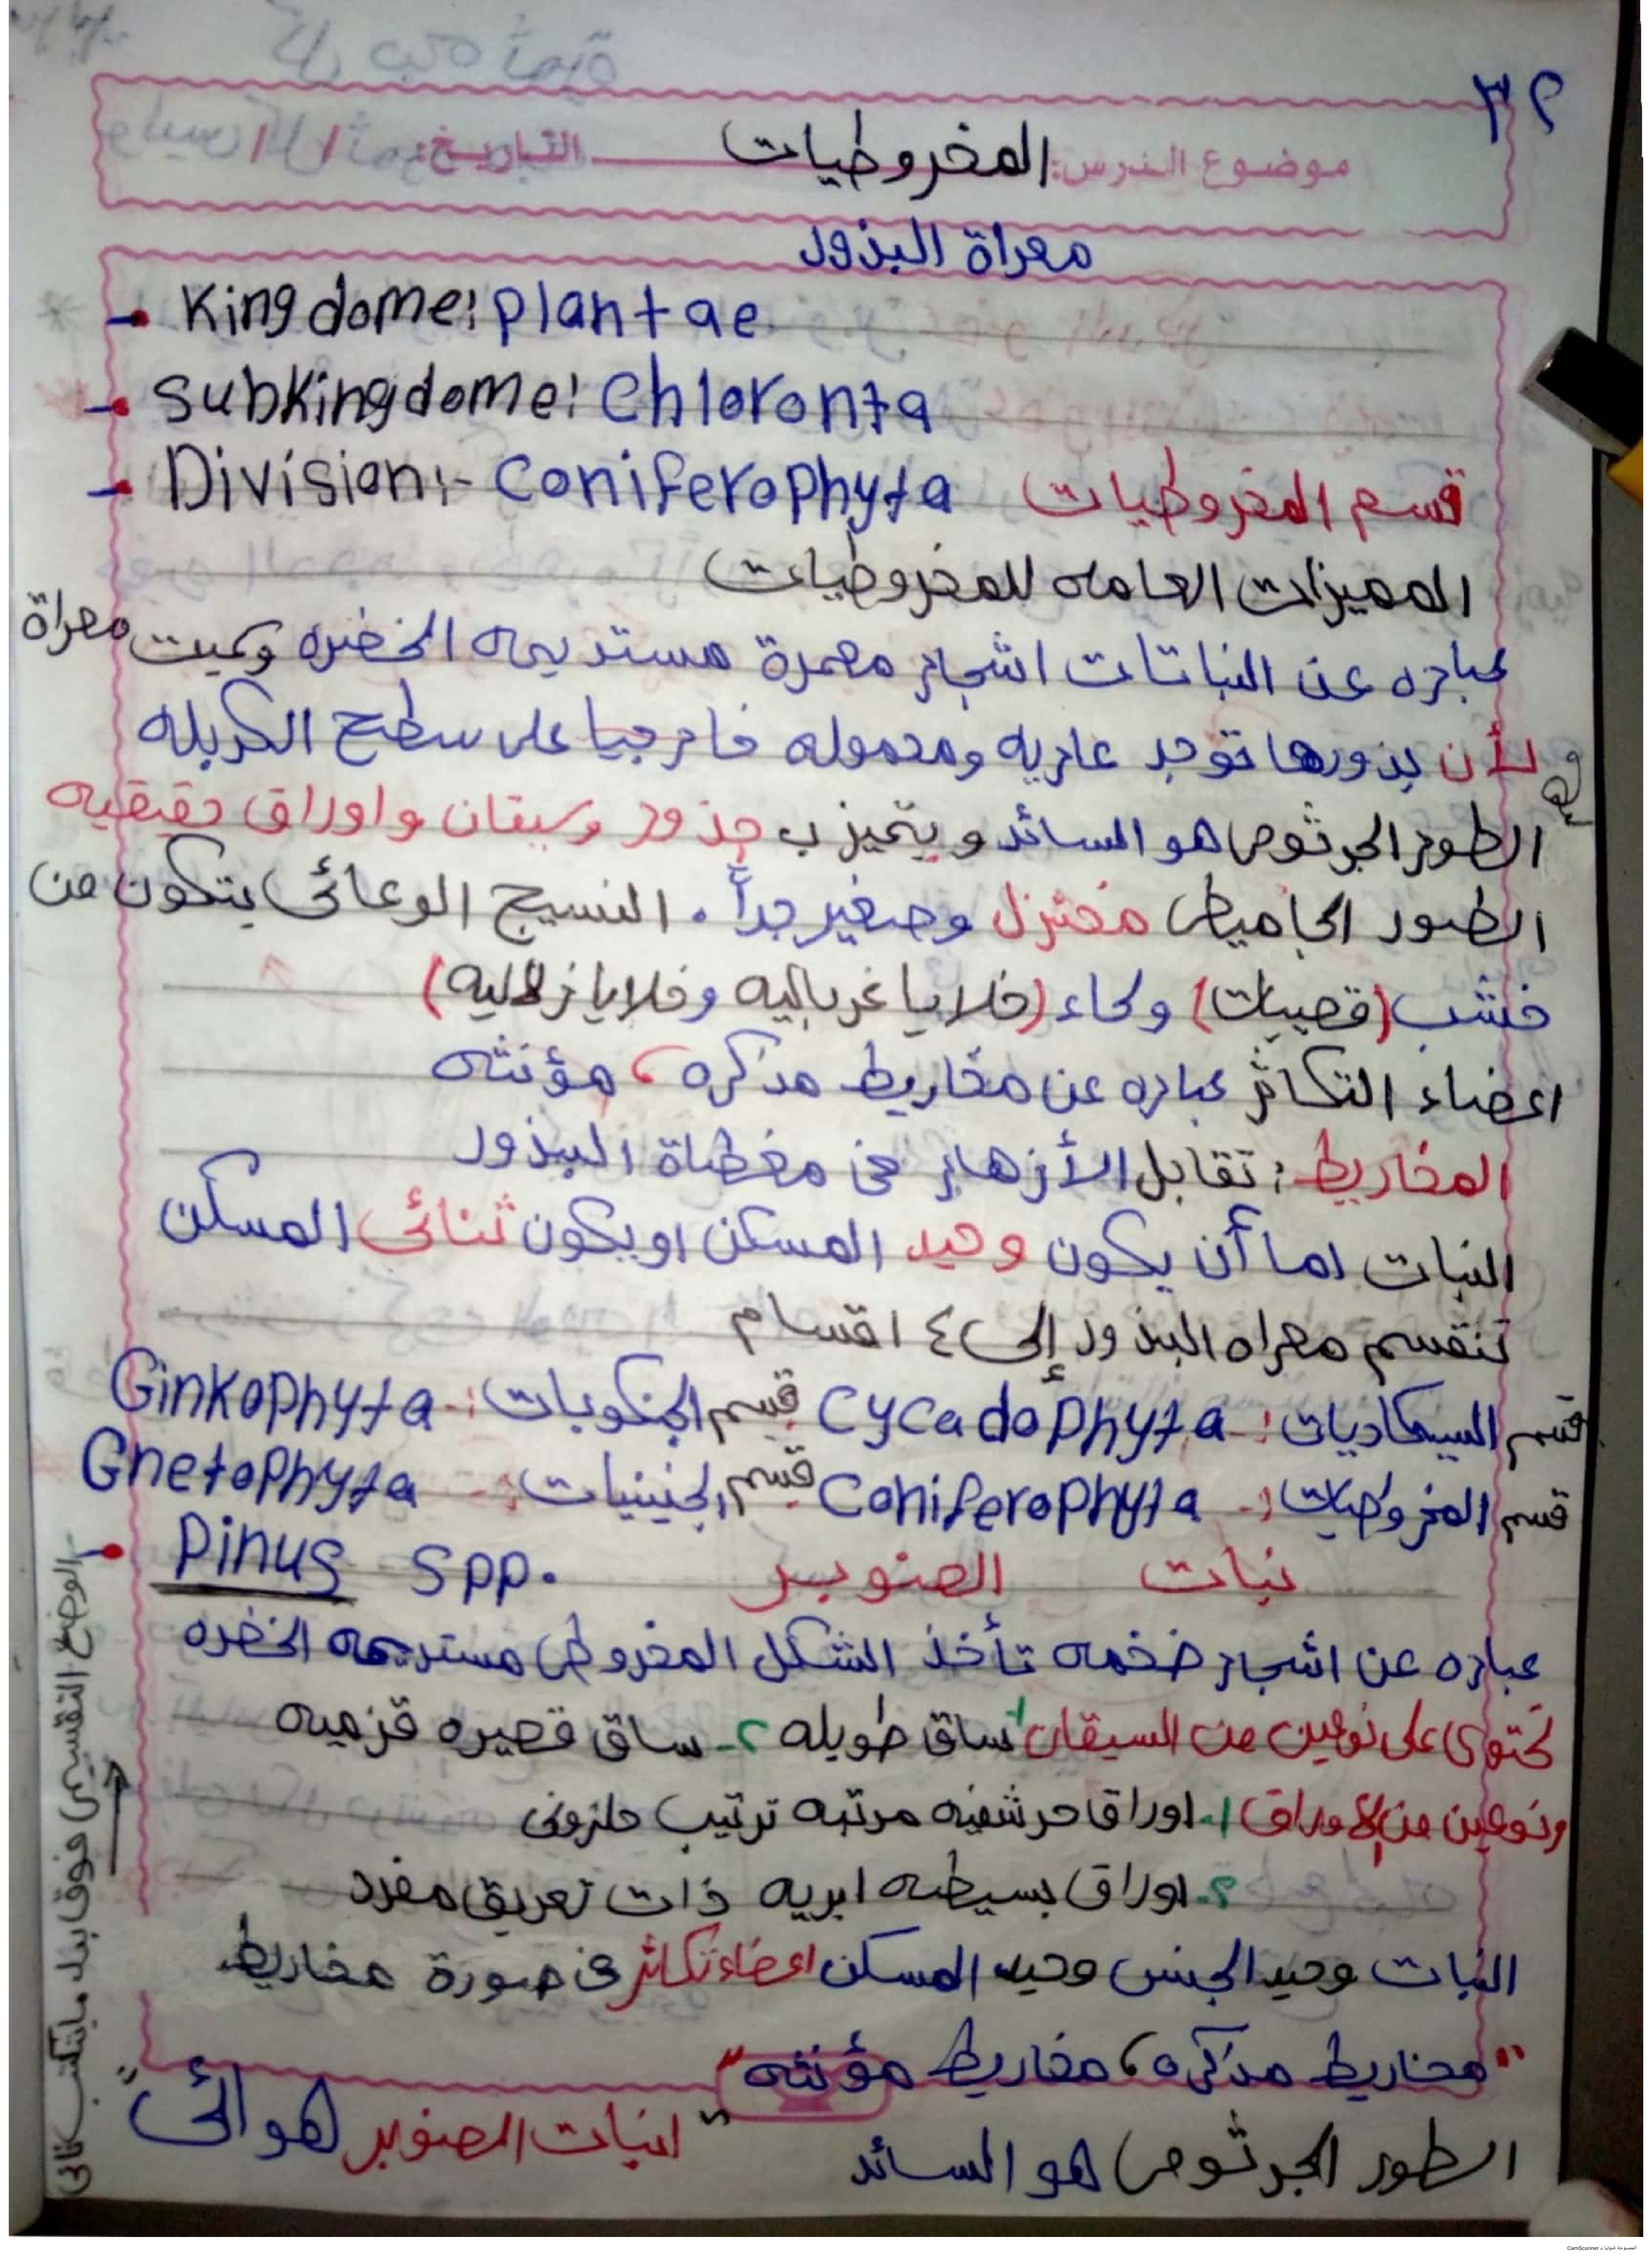 ٣٢
موضوع الدرس: المخروطيات التاريخ: / /
معراة البذور
Kingdome: plantae
subKingdome: Chloronta
Division:- Coniferophyta قسم المخروطيات
المميزات العامه للمخروطيات
عباره عن النباتات اشجار معمرة مستديمه الخضره وسميت معراة
لأن بذورها توجد عاريه ومحموله خارجيا على سطح الكربله
الطور الجرثومى هو السائد ويتميز ب جذور وسيقان واوراق حقيقيه
الطور الجاميطى مختزل وصغير جداً . النسيج الوعائى يتكون من
خشب (قصيبات) ولحاء (خلايا غرباليه وخلايا زلاليه)
اعضاء التكاثر عباره عن مخاريط مذكره، مؤنثه
المخاريط: تقابل الأزهار فى مغطاة البذور
النبات اما أن يكون وحيد المسكن او يكون ثنائى المسكن
تنقسم معراه البذور إلى ٤ اقسام
قسم السيكاديات:- Cycadophyta قسم الجنكويات:- Ginkophyta
قسم المخروطيات:- Coniferophyta قسم الجنينيات:- Gnetophyta
Pinus spp. نبات الصنوبر
عباره عن اشجار ضخمه تأخذ الشكل المخروطى مستديمه الخضره
تحتوى على نوعين من السيقان ١- ساق طويله ٢- ساق قصيره قزميه
ونوعين من الاوراق ١- اوراق حرشفيه مرتبه ترتيب حلزونى
٢- اوراق بسيطه ابريه ذات تعريق مفرد
النبات وحيد الجنس وحيد المسكن اعضاء تكاثر فى صورة مخاريط
"مخاريط مذكره، مخاريط مؤنثه"
الطور الجرثومى هو السائد "انبات الصنوبر هوائى"
الوضع التقسيمى فوق بيد مابتكتب كالى
الممسوحة ضوئيا بـ CamScanner